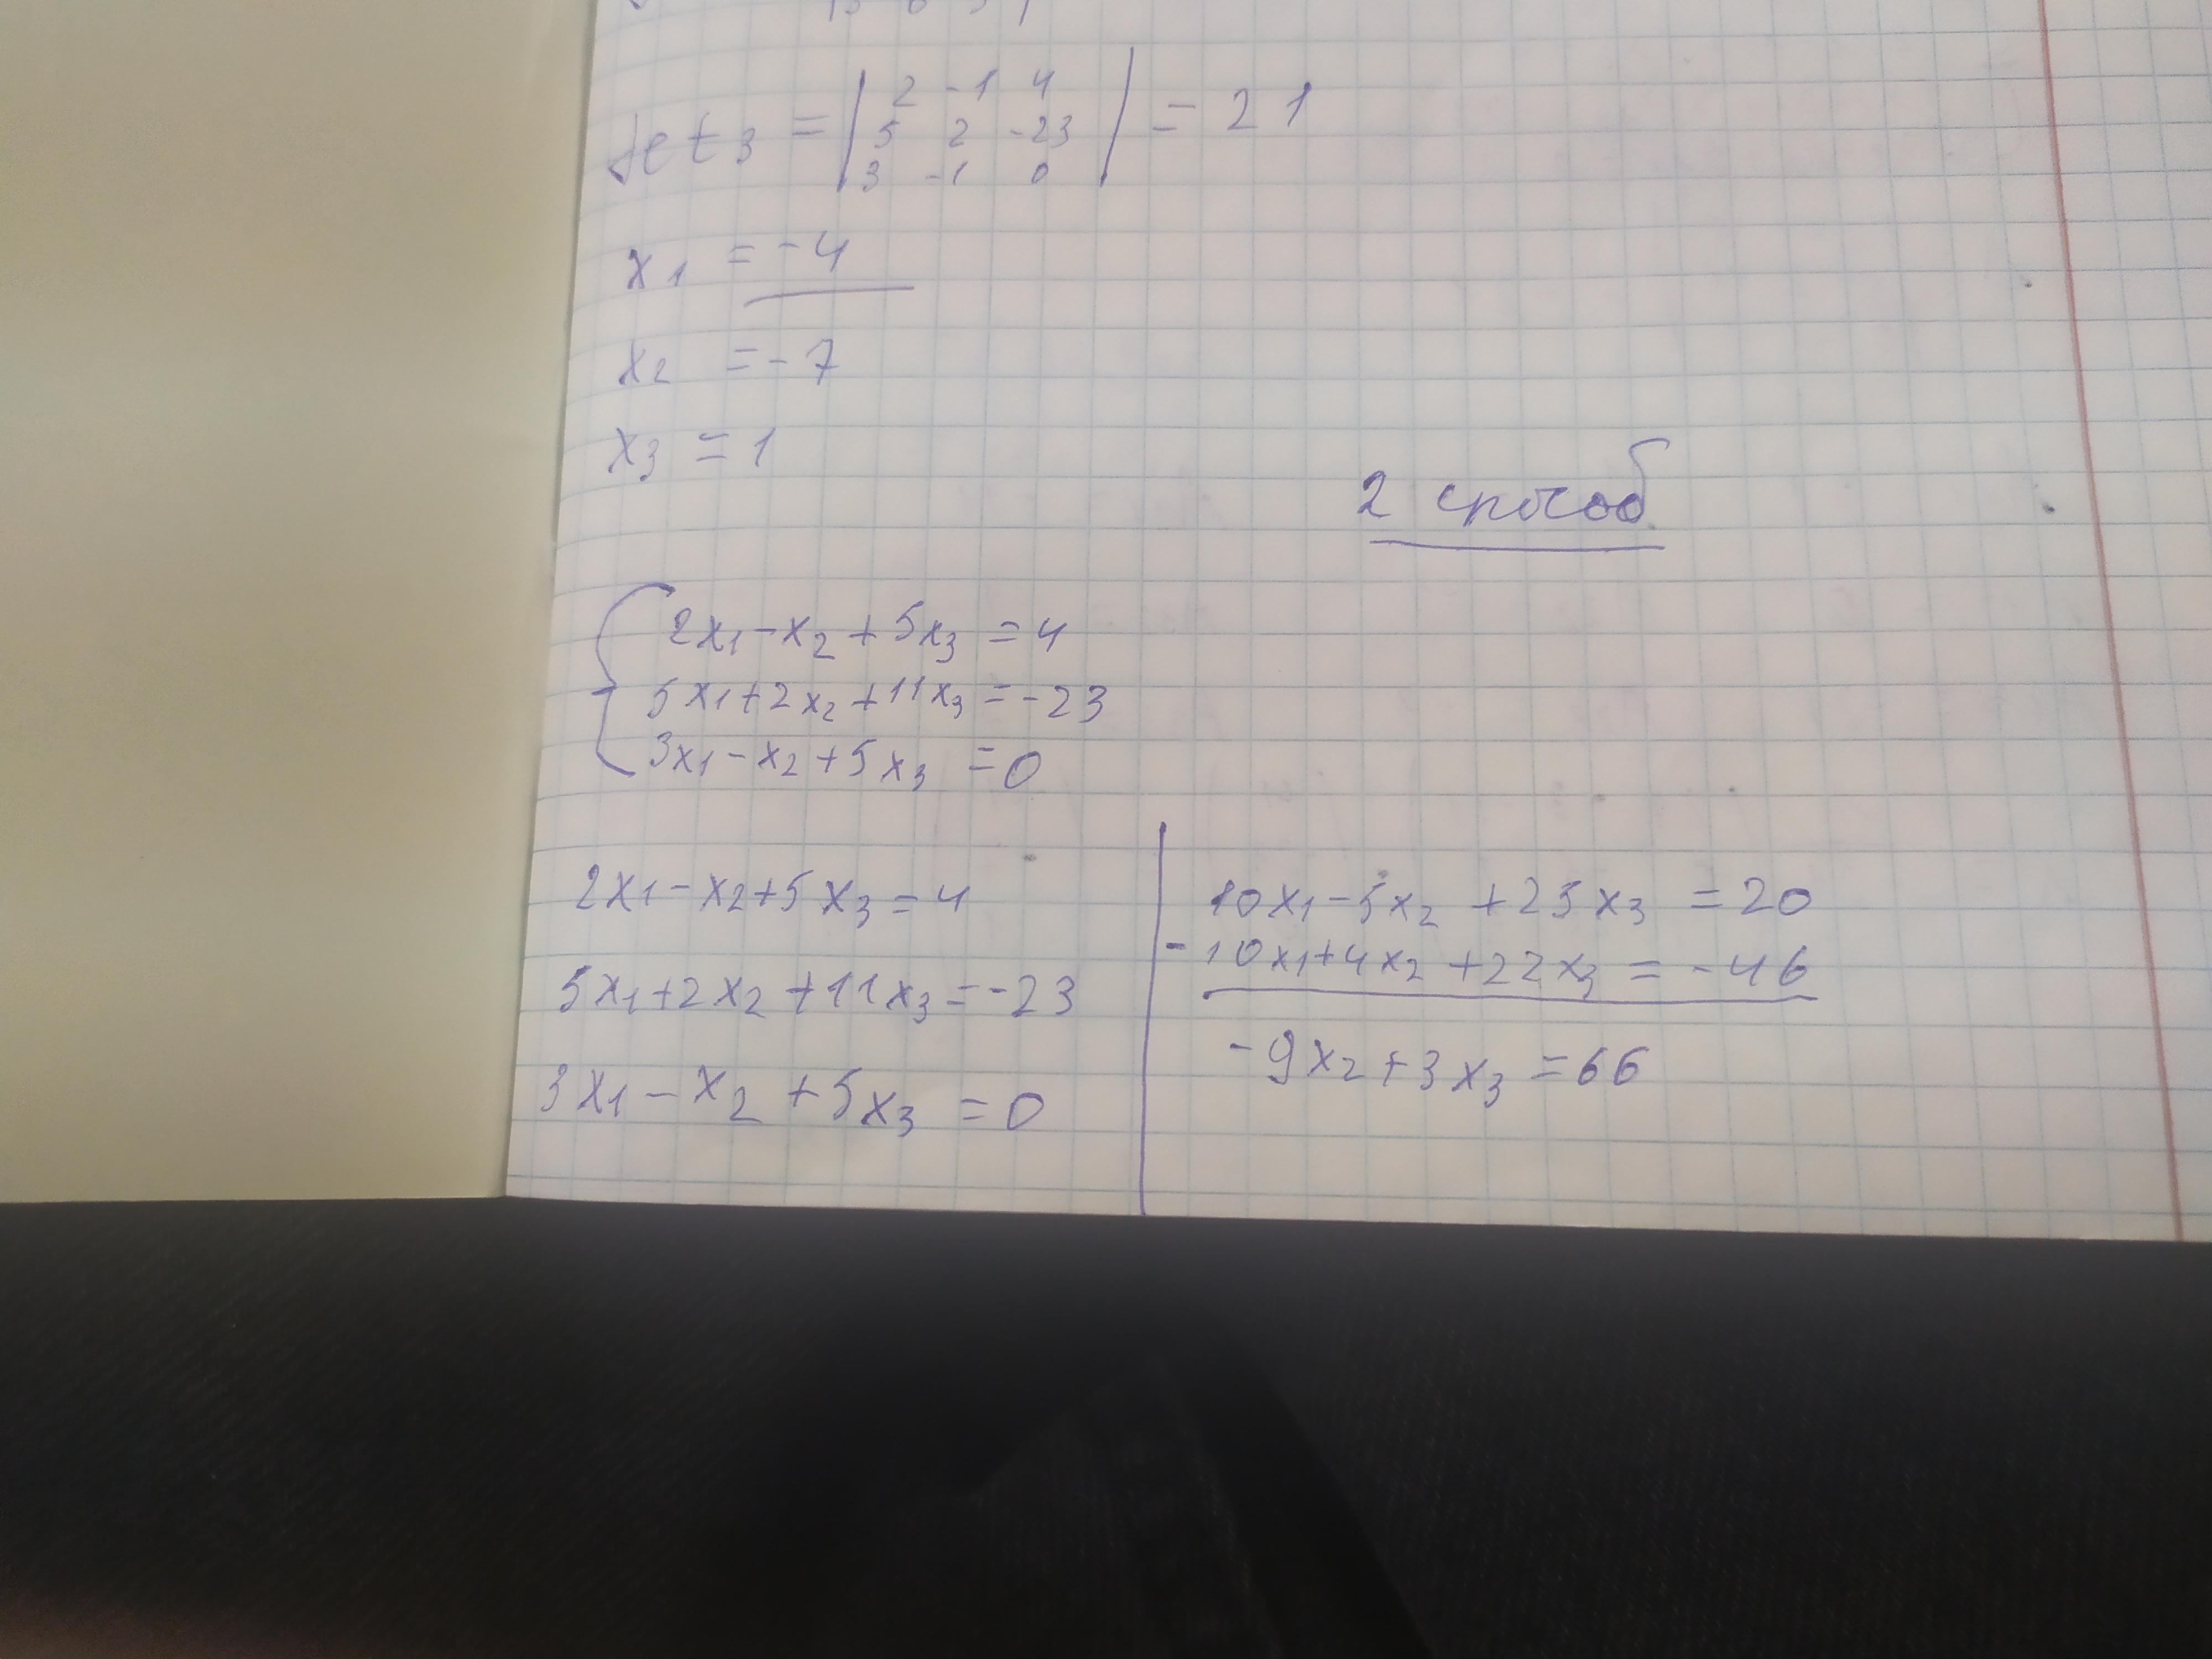 det₃ = | 2 -1 4 | = 21
5 2 -23
3 -1 0
x₁ = -4
x₂ = -7
x₃ = 1
2 способ
2x₁ - x₂ + 5x₃ = 4
5x₁ + 2x₂ + 11x₃ = -23
3x₁ - x₂ + 5x₃ = 0
2x₁ - x₂ + 5x₃ = 4
5x₁ + 2x₂ + 11x₃ = -23
3x₁ - x₂ + 5x₃ = 0
10x₁ - 5x₂ + 25x₃ = 20
- 10x₁ + 4x₂ + 22x₃ = -46
-9x₂ + 3x₃ = 66